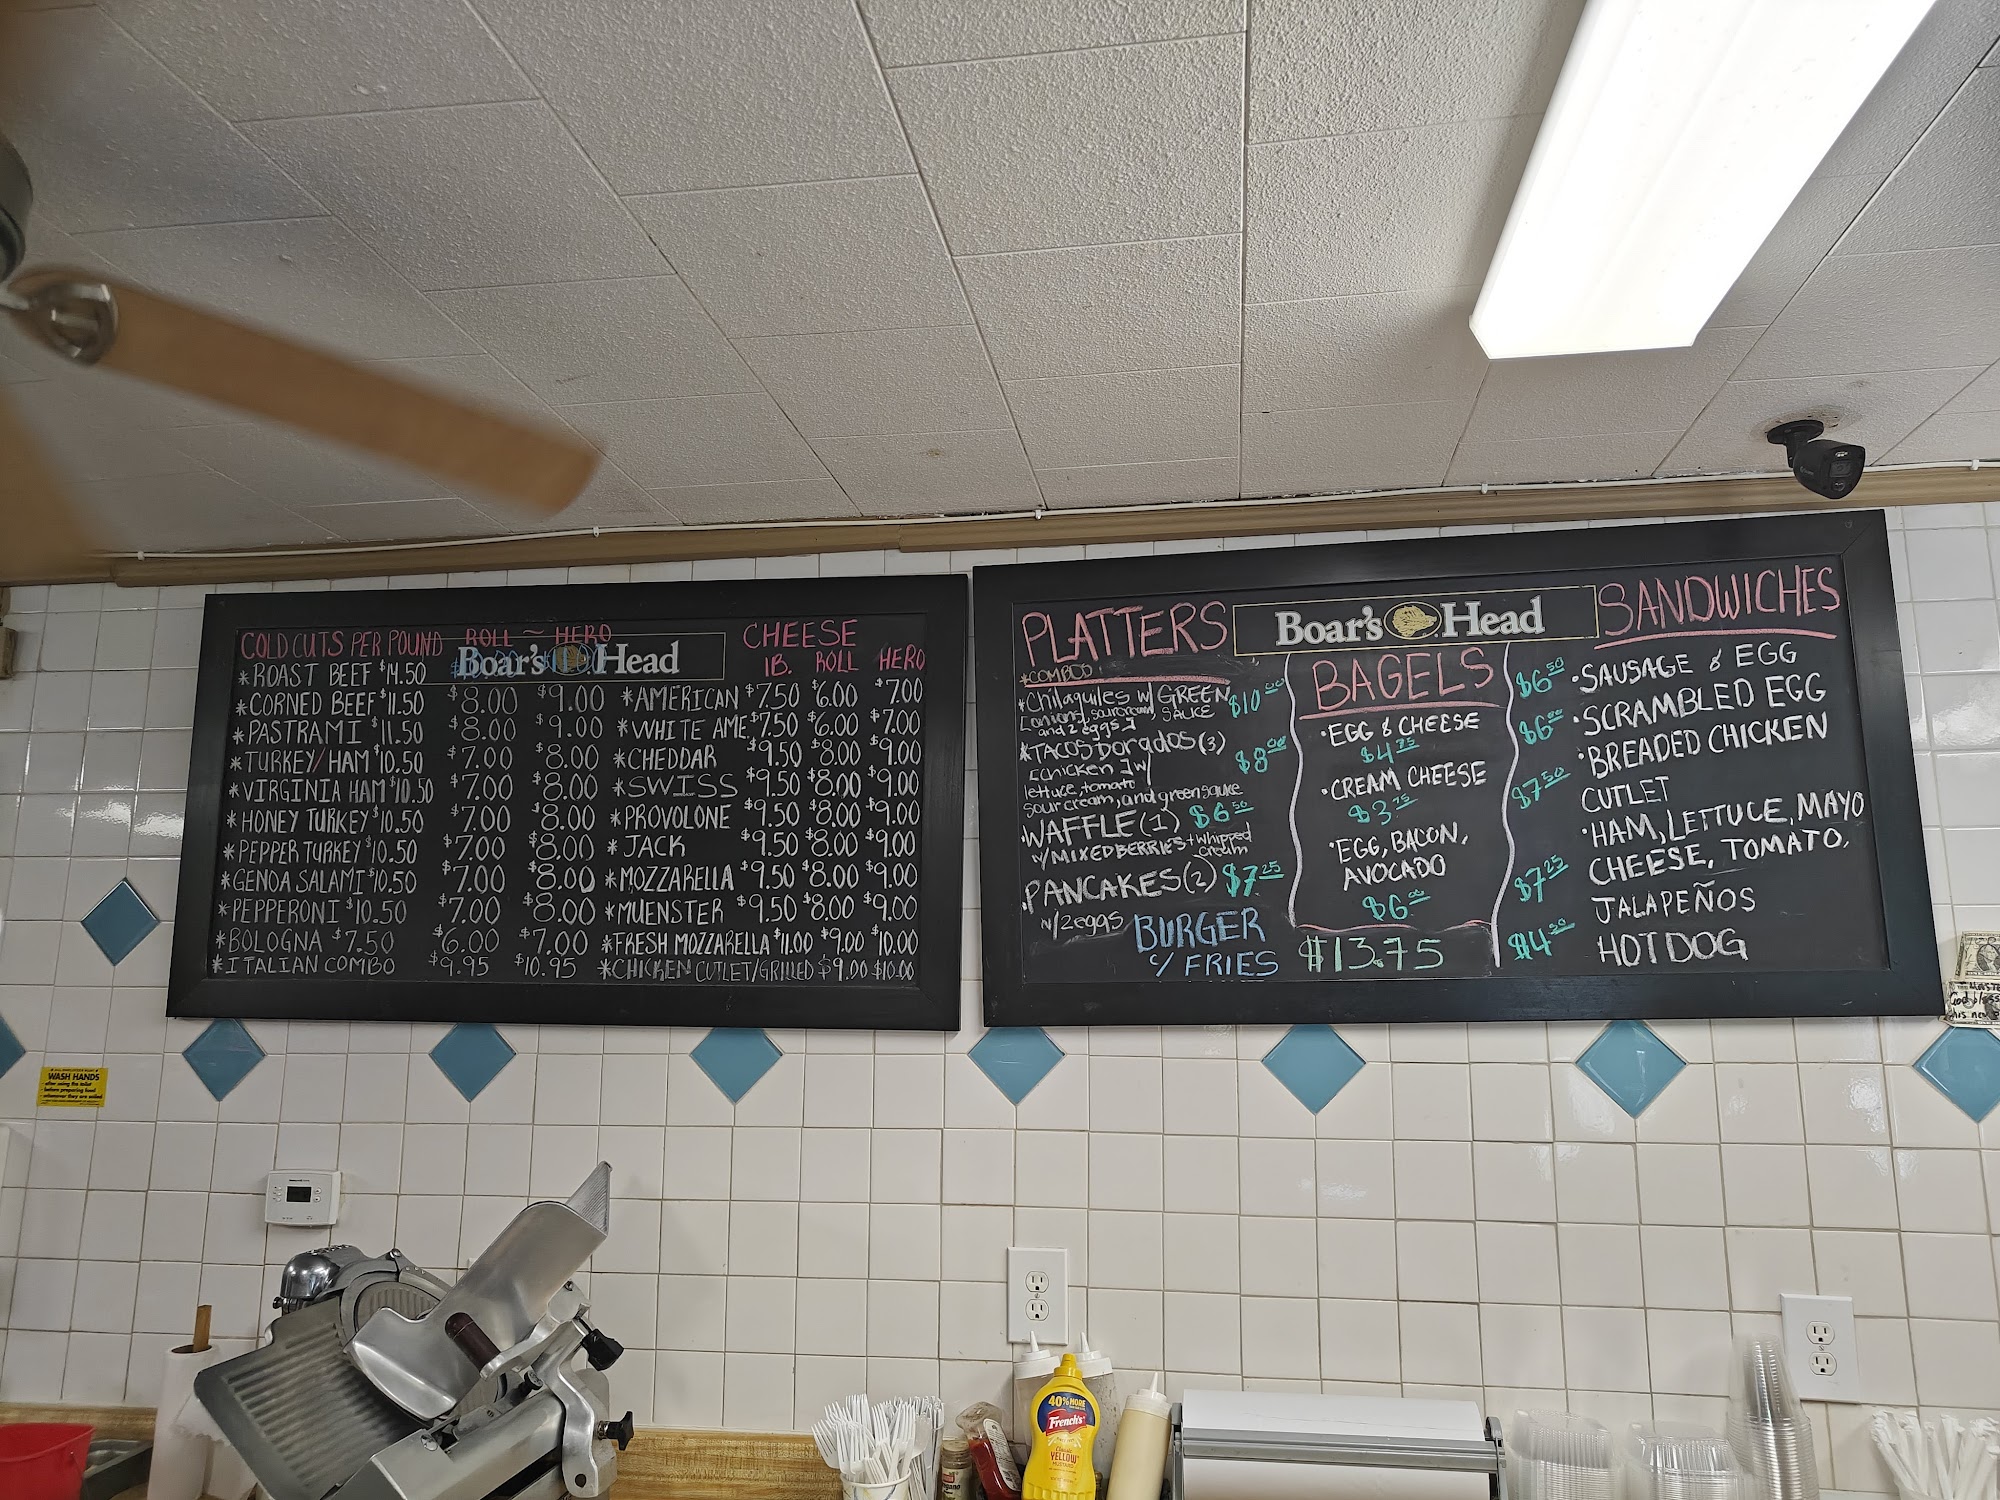 COLD CUTS PER POUND ROLL ~ HERO
Boar's Head
*ROAST BEEF $14.50
*CORNED BEEF $11.50 $8.00 $9.00
*PASTRAMI $11.50 $8.00 $9.00
*TURKEY/HAM $10.50 $7.00 $8.00
*VIRGINIA HAM $10.50 $7.00 $8.00
*HONEY TURKEY $10.50 $7.00 $8.00
*PEPPER TURKEY $10.50 $7.00 $8.00
*GENOA SALAMI $10.50 $7.00 $8.00
*PEPPERONI $10.50 $7.00 $8.00
*BOLOGNA $7.50 $6.00 $7.00
*ITALIAN COMBO $9.95 $10.95
CHEESE
lB. ROLL HERO
*AMERICAN $7.50 $6.00 $7.00
*WHITE AME. $7.50 $6.00 $7.00
*CHEDDAR $9.50 $8.00 $9.00
*SWISS $9.50 $8.00 $9.00
*PROVOLONE $9.50 $8.00 $9.00
*JACK $9.50 $8.00 $9.00
*MOZZARELLA $9.50 $8.00 $9.00
*MUENSTER $9.50 $8.00 $9.00
*FRESH MOZZARELLA $11.00 $9.00 $10.00
*CHICKEN CUTLET/GRILLED $9.00 $10.00
PLATTERS
*COMBOD
*Chilaquiles w/ GREEN $10.00
[onions, sourcream, SAUCE
and 2 eggs]
*TACOS Dorados (3) $8.00
[chicken] w/
lettuce, tomato
sour cream, and green sauce
·WAFFLE (1) $6.50
w/ MIXED BERRIES + whipped
cream
·PANCAKES (2) $7.25
w/ 2 eggs
BURGER
c/ FRIES $13.75
Boar's Head
BAGELS
·EGG & CHEESE
$4.75
·CREAM CHEESE
$3.75
·EGG, BACON,
AVOCADO
$6.00
SANDWICHES
$6.50 ·SAUSAGE & EGG
$6.00 ·SCRAMBLED EGG
·BREADED CHICKEN
$7.50 CUTLET
·HAM, LETTUCE, MAYO
$7.25 CHEESE, TOMATO,
JALAPEÑOS
$4.50 HOT DOG
WASH HANDS
after using the toilet
before preparing food
whenever they are soiled
40% MORE
French's
Classic
YELLOW
MUSTARD